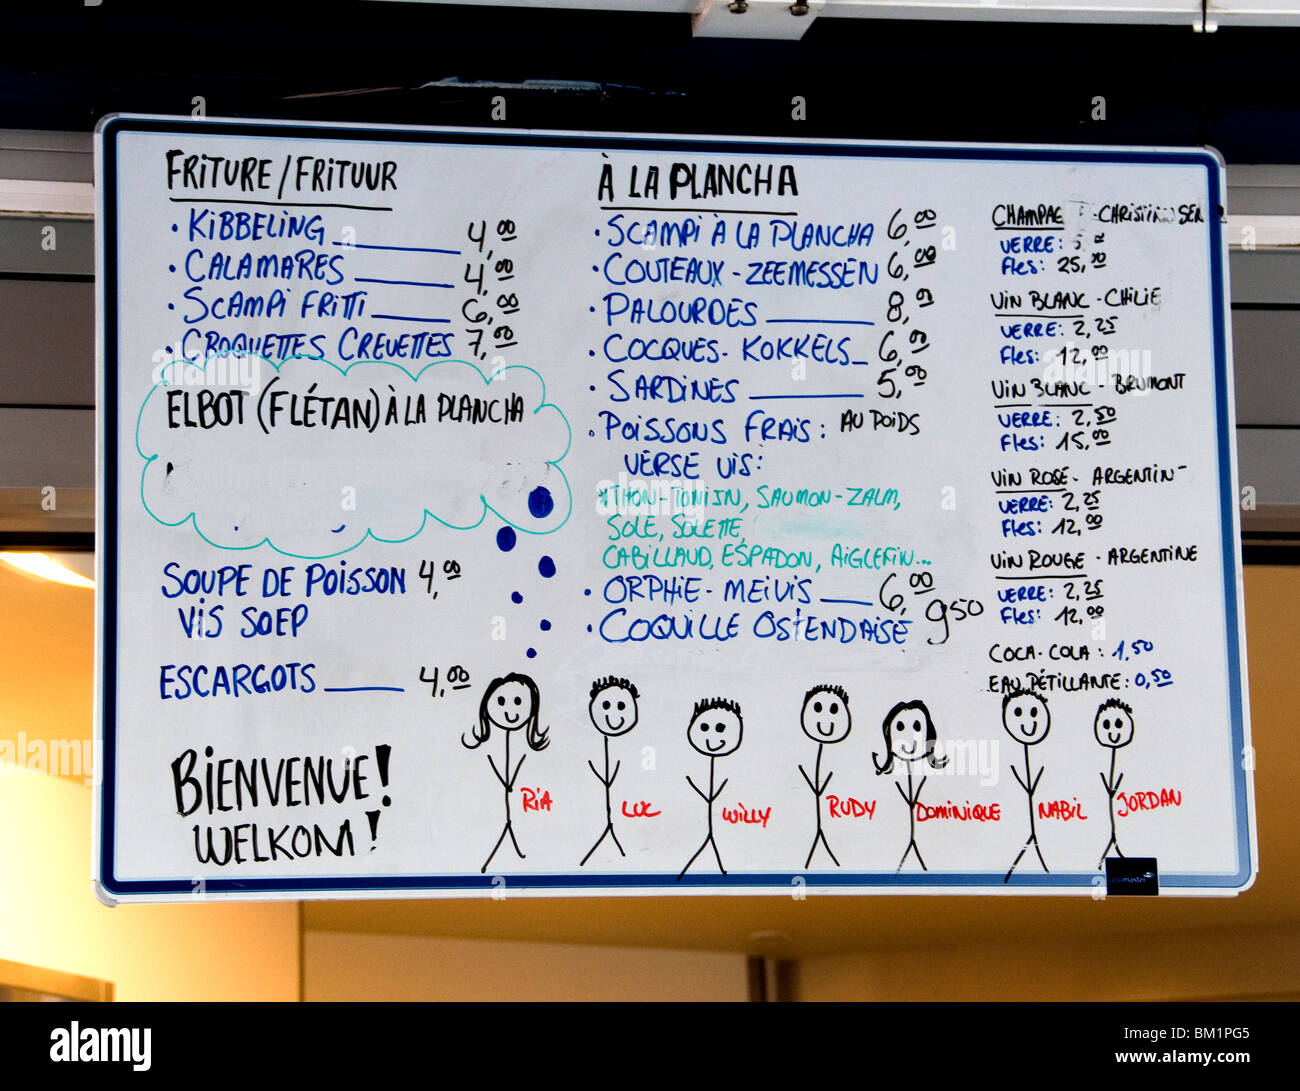 FRITURE/FRITUUR
• KIBBELING 4,00
• CALAMARES 4,00
• SCAMPI FRITTI 6,00
• CROQUETTES CREVETTES 7,00
ELBOT (FLÉTAN) À LA PLANCHA
SOUPE DE POISSON 4,00
VIS SOEP
ESCARGOTS 4,00
BIENVENUE!
WELKOM!
À LA PLANCHA
• SCAMPI À LA PLANCHA 6,00
• COUTEAUX - ZEEMESSEN 6,00
• PALOURDES 8,00
• COCQUES - KOKKELS 6,00
• SARDINES 5,00
• POISSONS FRAIS: AU POIDS
VERSE VIS:
*THON-TONIJN, SAUMON-ZALM,
SOLE, SOLETTE,
CABILLAUD, ESPADON, AIGLEFIN...
• ORPHIE - MEIVIS 6,00
• COQUILLE OSTENDAISE 9,50
CHAMPAG
VERRE:
Fles: 25,00
VIN BLANC - CHILIE
VERRE: 2,25
Fles: 12,00
VIN BLANC - BRUMONT
VERRE: 2,50
Fles: 15,00
VIN ROSÉ - ARGENTIN
VERRE: 2,25
Fles: 12,00
VIN ROUGE - ARGENTINE
VERRE: 2,25
Fles: 12,00
COCA-COLA: 1,50
EAU PÉTILLANTE: 0,50
RIA
LUC
WILLY
RUDY
DOMINIQUE
NABIL
JORDAN
a
alamy
Image ID: BM1PG5
www.alamy.com